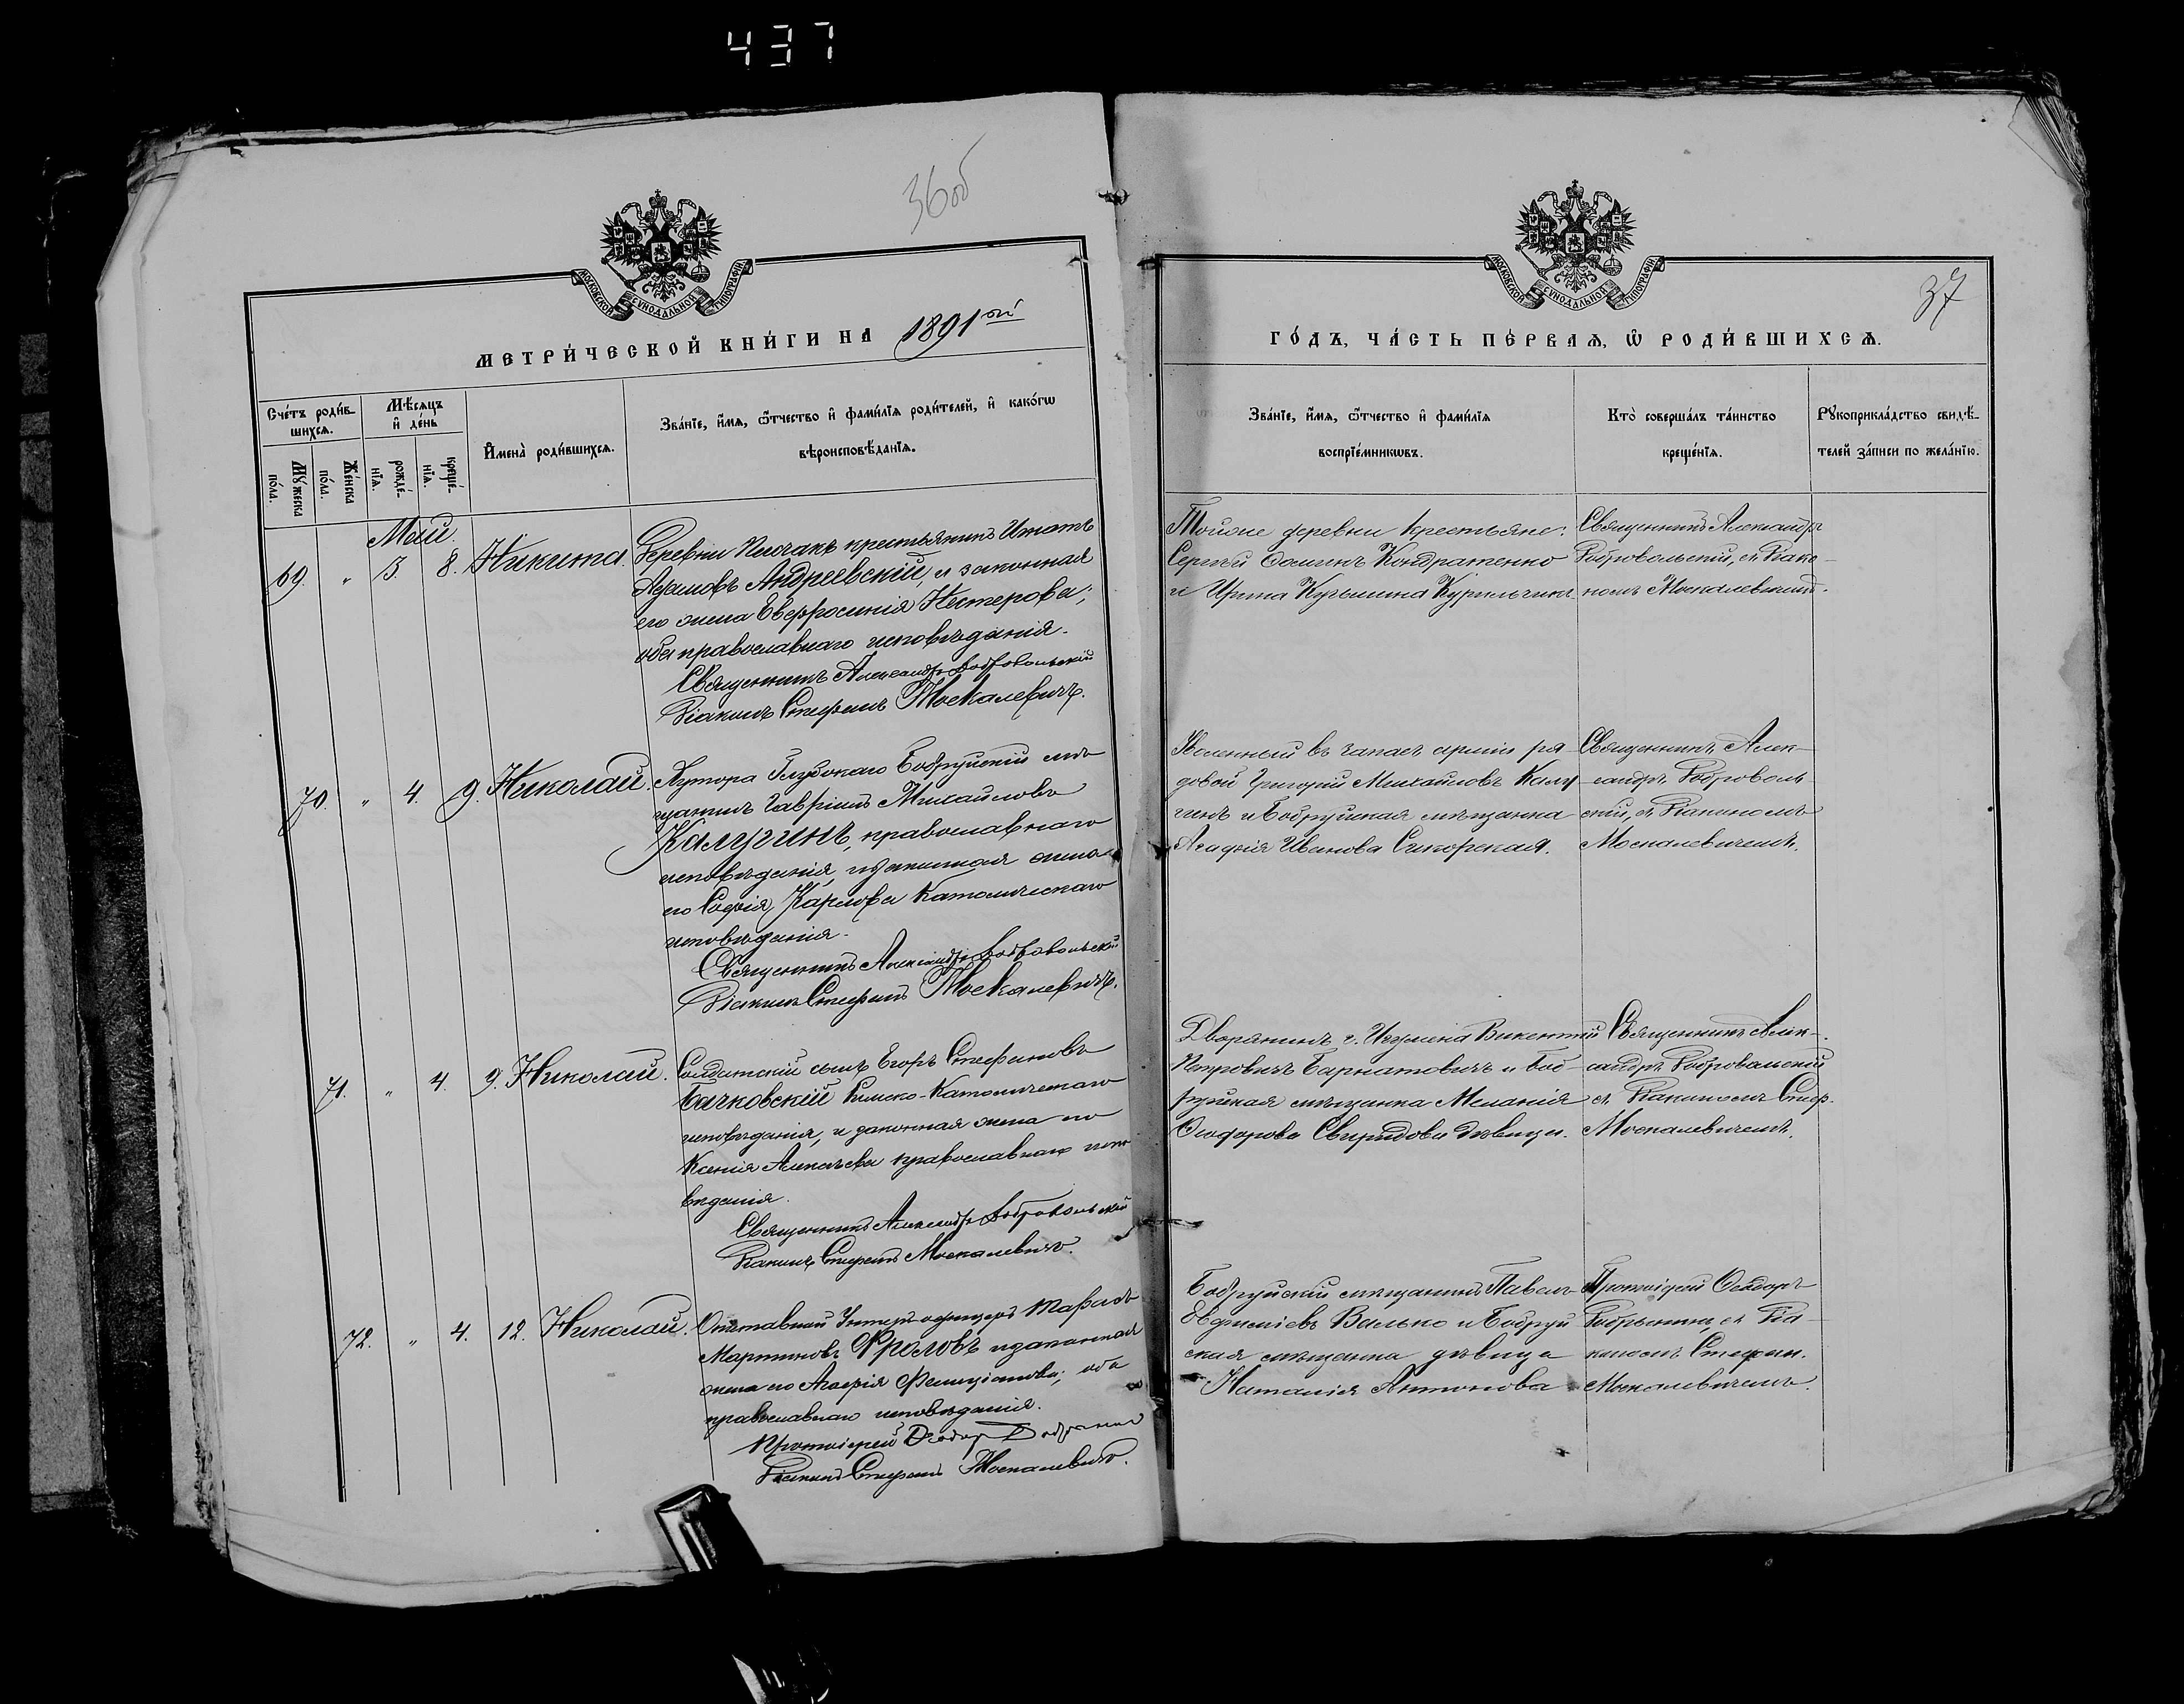 437
36об
МОСКОВСКОЙ СѴНОДАЛЬНОЙ ТИПОГРАФІИ
МЕТРИ́ЧЕСКОЙ КНИ́ГИ НА 1891ый
Сче́тъ роди́в-
шихсѧ.
Мѣ́сѧцъ
и҆ де́нь
И҆мена̀ роди́вшихсѧ.
Зва́нїе, и҆́мѧ, ѻ҆́тчество и҆ фами́лїѧ роди́телей, и҆ како́гѡ
вѣроисповѣ́данїѧ.
Мꙋ́жеска
по́ла.
Же́нска
по́ла.
рожде́-
нїѧ.
креще́-
нїѧ.
Май.
69. " 3. 8. Никита. Деревни Плючакъ крестьянинъ Игнатъ
Адамовъ Андреевскій, и законная
его жена Евфросинія Нестерова;
оба православнаго исповѣданія.
Священникъ Александръ Добровольскій
Діаконъ Стефанъ Москалевичъ.
70. " 4. 9. Николай. Хутора Глубокаго Бобруйскій мѣ-
щанинъ Гавріилъ Михайловъ
Калугинъ, православнаго
исповѣданія, и законная жена
его Софія Карлова Католическаго
исповѣданія.
Священникъ Александръ Добровольскій
Діаконъ Стефанъ Москалевичъ.
71. " 4. 9. Николай. Солдатскій сынъ Егоръ Стефановъ
Бачковскій Римско-Католическаго
исповѣданія, и законная жена его
Ксенія Алексѣева православнаго испо-
вѣданія.
Священникъ Александръ Добровольскій
Діаконъ Стефанъ Москалевичъ.
72. " 4. 12. Николай. Отставной Унтеръ-офицеръ
Мартиновъ Фроловъ и законная
жена его Агафія Фелиціанова; оба
православнаго исповѣданія.
Протоіерей Ѳеодоръ
Діаконъ Стефанъ Москалевичъ.
37
МОСКОВСКОЙ СѴНОДАЛЬНОЙ ТИПОГРАФІИ
ГО́ДЪ, ЧА́СТЬ ПЕ́РВАѦ, Ѿ РОДИ́ВШИХСѦ.
Зва́нїе, и҆́мѧ, ѻ҆́тчество и҆ фами́лїѧ
воспрїе́мникѡвъ.
Кто̀ соверша́лъ та́инство
креще́нїѧ.
Рꙋкоприкла́дство свидѣ́-
телей за́писи по жела́нїю.
Тойже деревни крестьяне:
Сергѣй Ѳоминъ Кондратенко
и Ирина Кузьмина
Священникъ Александръ
Добровольскій, съ Діако-
номъ Москалевичемъ.
Уволенный въ запасъ арміи ря-
довой Григорій Михайловъ Калу-
гинъ и Бобруйская мѣщанка
Агафія Иванова Сикорская.
Священникъ Алек-
сандръ Доброволь-
скій, съ Діакономъ
Москалевичемъ.
Дворянинъ г. Игумена Викентій
Петровичъ Барнатовичъ и Боб-
руйская мѣщанка Меланія
Ѳеодорова Свиридова дѣвица.
Священникъ Алек-
сандръ Добровольскій
съ Діакономъ Стеф.
Москалевичемъ.
Бобруйскій мѣщанинъ Павелъ
Евфиміевъ Валько и Бобруй-
ская мѣщанка дѣвица
Наталія Антонова
Протоіерей Ѳеодоръ
съ Діа-
кономъ Стефан.
Москалевичемъ.